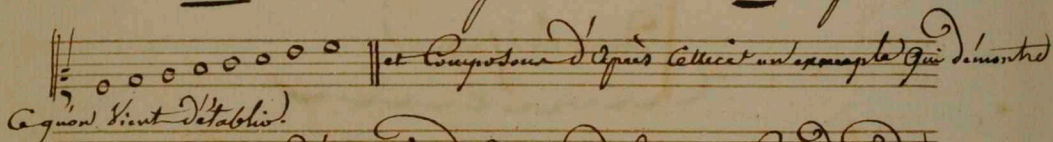 et Composons d'après Cellecÿ un exemple qui démontre
Ce qu'on Vient d'établir.